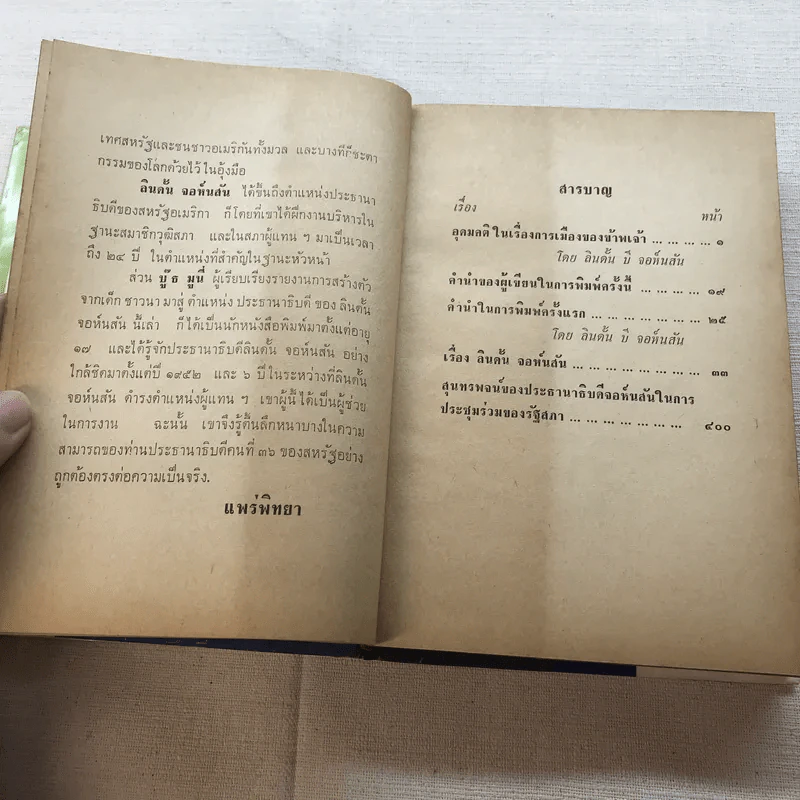 เทศสหรัฐและชนชาวอเมริกันทั้งมวล และบางทีก็ชะตา
กรรมของโลกด้วยไว้ในอุ้งมือ
ลินดั้น จอห์นสัน ได้ขึ้นถึงตำแหน่งประธานา
ธิบดีของสหรัฐอเมริกา ก็โดยที่เขาได้ฝึกงานบริหารใน
ฐานะสมาชิกวุฒิสภา และในสภาผู้แทน ฯ มาเป็นเวลา
ถึง ๒๔ ปี ในตำแหน่งที่สำคัญในฐานะหัวหน้า
ส่วน บู๊ธ มูนี่ ผู้เรียบเรียงรายงานการสร้างตัว
จากเด็ก ชาวนา มาสู่ ตำแหน่ง ประธานาธิบดี ของ ลินดั้น
จอห์นสัน นี้เล่า ก็ได้เป็นนักหนังสือพิมพ์มาตั้งแต่อายุ
๑๗ และได้รู้จักประธานาธิบดีลินดั้น จอห์นสัน อย่าง
ใกล้ชิดมาตั้งแต่ปี ๑๙๕๒ และ ๖ ปีในระหว่างที่ลินดั้น
จอห์นสัน ดำรงตำแหน่งผู้แทน ฯ เขาผู้นี้ได้เป็นผู้ช่วย
ในการงาน ฉะนั้น เขาจึงรู้ตื้นลึกหนาบางในความ
สามารถของท่านประธานาธิบดีคนที่ ๓๖ ของสหรัฐอย่าง
ถูกต้องตรงต่อความเป็นจริง.
แพร่พิทยา
สารบาญ
เรื่อง หน้า
อุดมคติในเรื่องการเมืองของข้าพเจ้า ... ... ... ... ๑
โดย ลินดั้น บี จอห์นสัน
คำนำของผู้เขียนในการพิมพ์ครั้งนี้ ... ... ... ... ๑๙
คำนำในการพิมพ์ครั้งแรก ... ... ... ... ... ... ๒๕
โดย ลินดั้น บี จอห์นสัน
เรื่อง ลินดั้น จอห์นสัน ... ... ... ... ... ... ... ๓๓
สุนทรพจน์ของประธานาธิบดีจอห์นสันในการ
ประชุมร่วมของรัฐสภา ... ... ... ... ... ... ... ๔๐๐